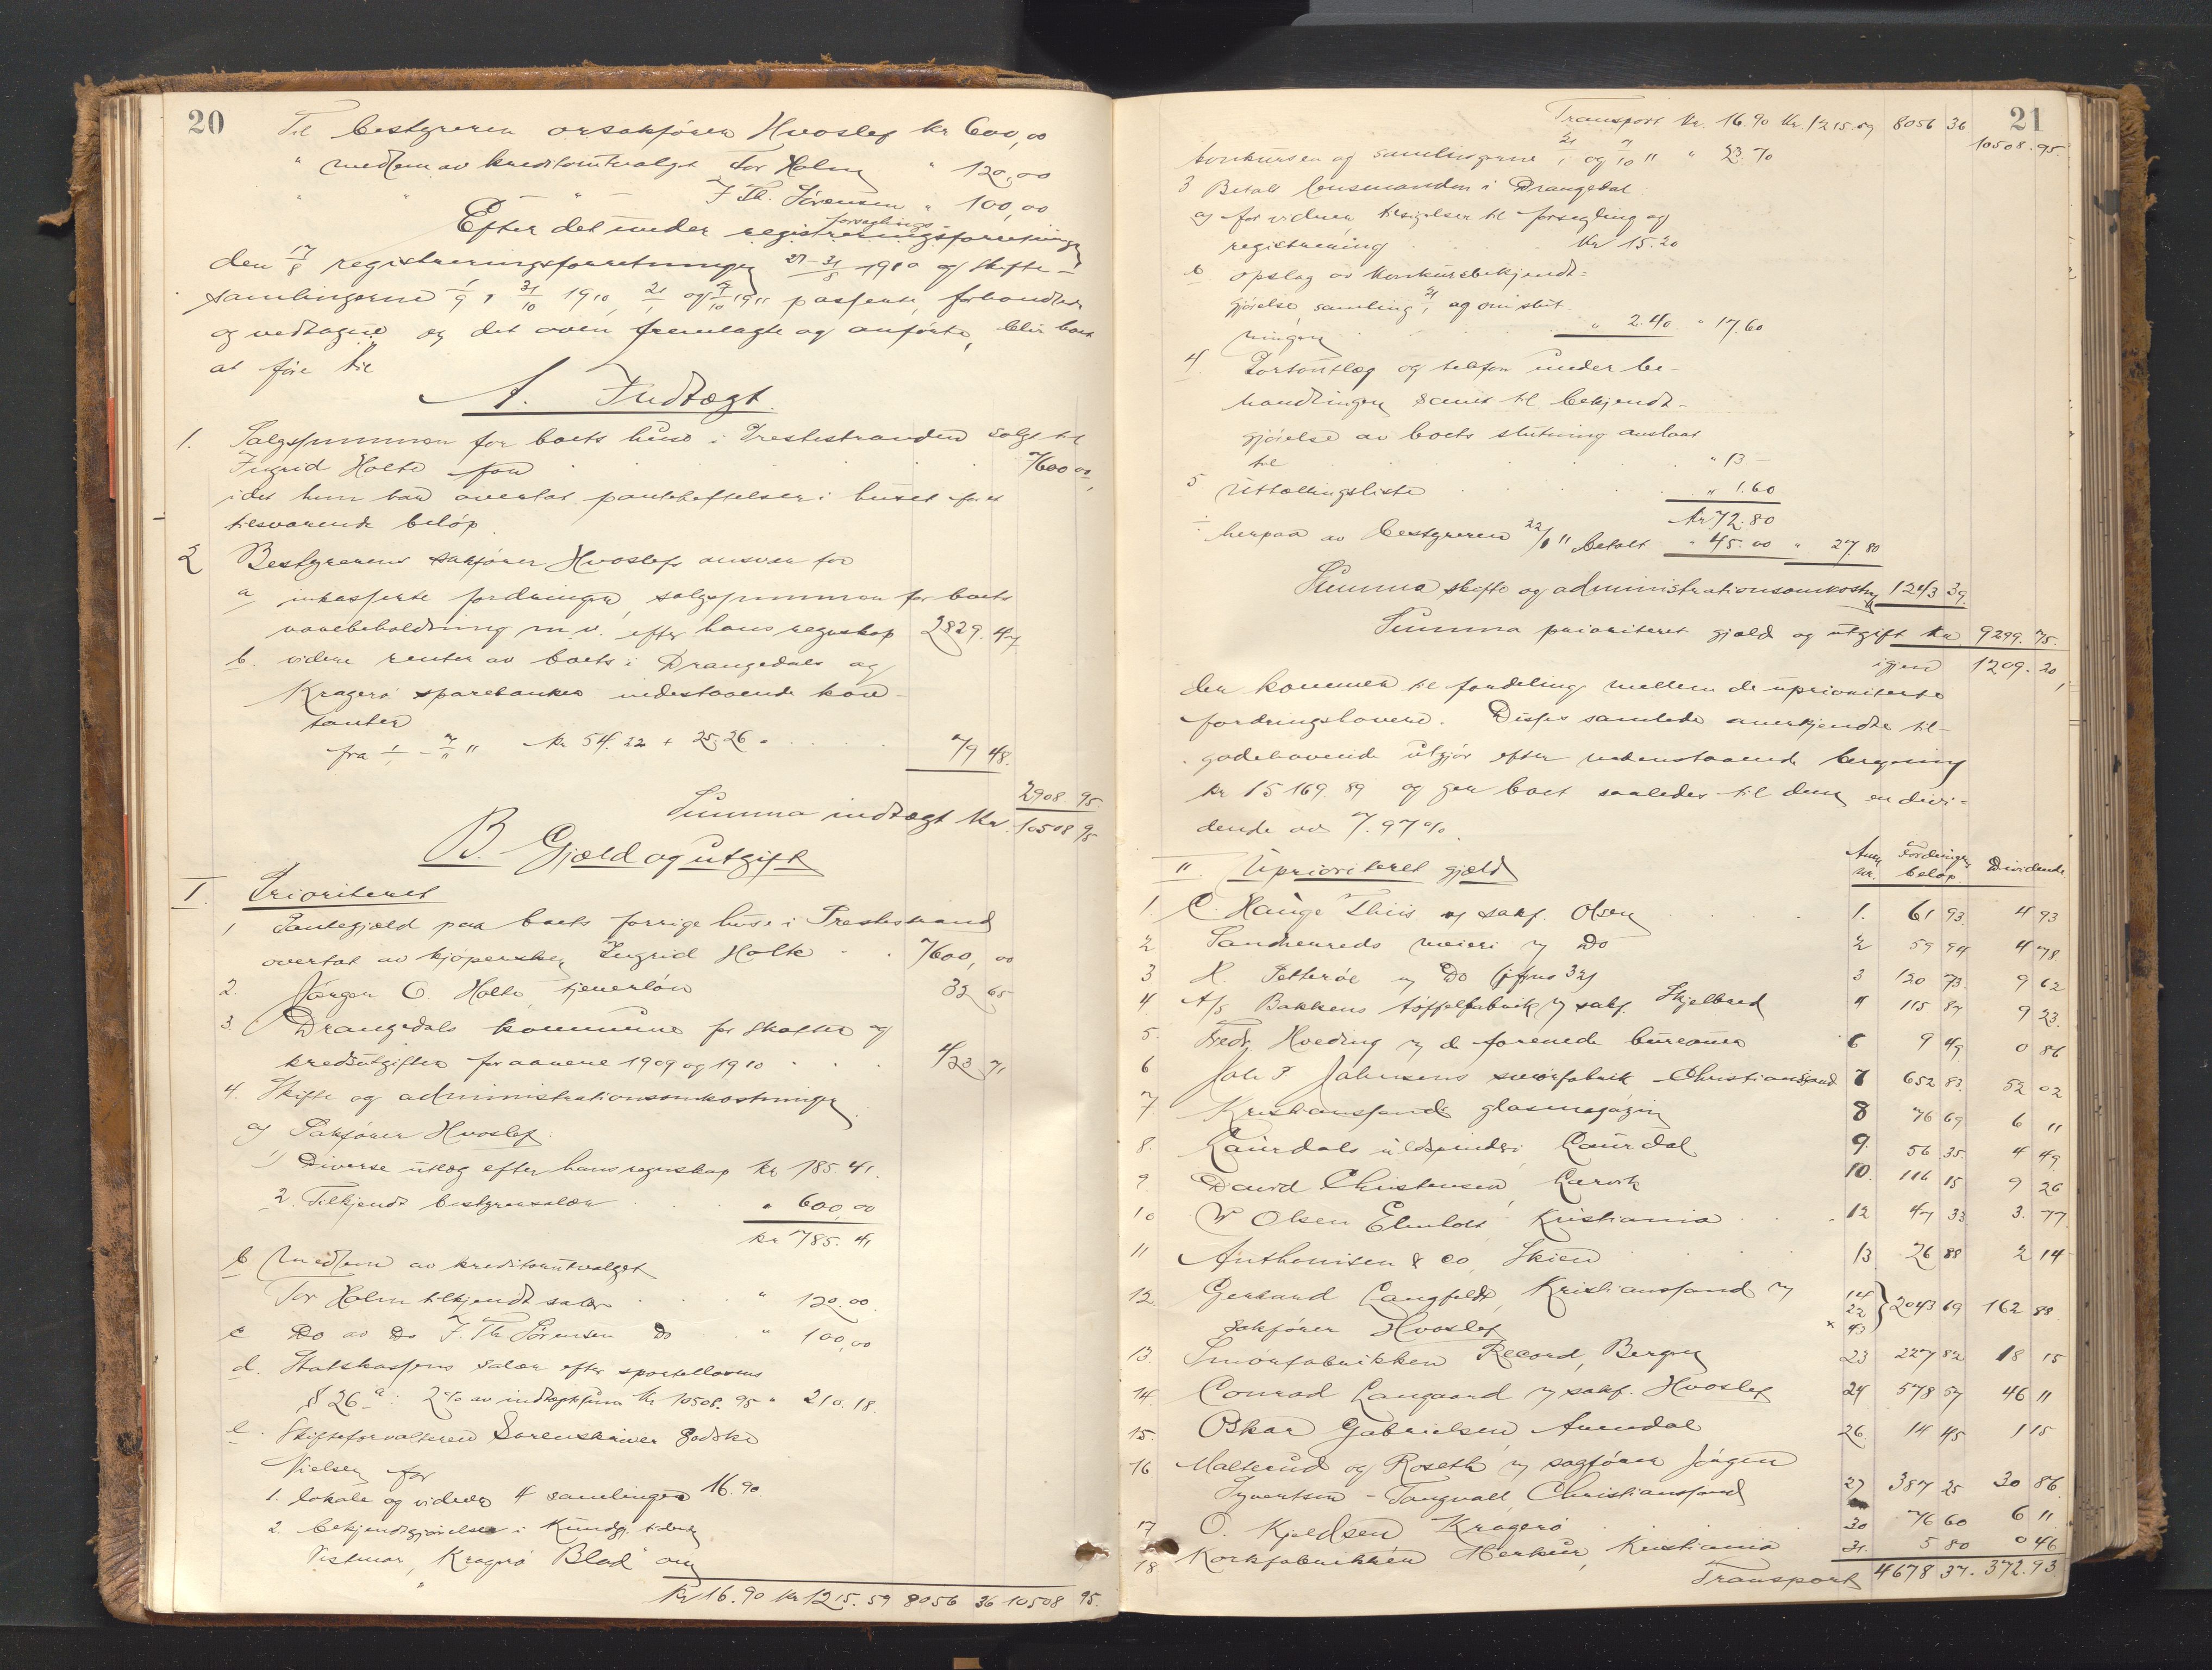 20
Til bestyreren orsakfører Hvoslef kr 600,00
" medlem av kreditorutvalget Tor Holm " 120,00
" " " J Th. Sørensen " 100,00
Efter det under forseglings
registreringsforretningen
den 17/8 registreringsforretningen 27-31/8 1910 og skifte-
samlingerne 1/9, 31/10 1910, 21/1 og 7/10 1911 passerte, forhandlede
og vedtagne og det oven fremlagte og anførte, blir boet
at føre til
A. Indtægt.
1. Salgssummen for boets huse i Prestestranden solgt til
Ingrid Holte for 7600 00,
idet hun har overtat panteheftelser i huset for et
tilsvarende beløp.
2 Bestyrerens sakfører Hvoslefs ansvar for
a inkasserte fordringer, salgssummen for boets
varebeholdning m.v. efter hans regnskap 2829. 47
b. videre renter av boets i Drangedals og
Kragerø sparebanker indestaaende kon-
tanter
fra 1/1 - 7/11 " kr 54.22 + 25,26 " 79 48.
2908. 95.
Summa indtægt kr. 10508 95
B. Gjæld og utgift
I. Prioriteret
1 Pantegjæld paa boets forrige huse i Prestestrand
overtat av kjøpersken Ingrid Holte 7600, 00
2. Jørgen O. Holte, tjenerløn 32 65
3. Drangedals kommune for skatter og
kredsutgifter for aarene 1909 og 1910 423 71
4. Skifte og administrationsomkostninger.
a) Sakfører Hvoslef:
1) Diverse utlæg efter hans regnskap kr 185.41.
2. Tilkjendt bestyrersalær " 600,00
kr 785.41
b Medlem av kreditorutvalget
Tor Holm tilkjendt salær " 120.00.
c Do av Do J. Th. Sørensen Do " 100,00
d. Statskassens salær efter sportellovens
§ 26 a: 2% av indtægtssum kr 10508.95 " 210.18.
e. Skifteforvalteren Sorenskriver Godske
Nielsen for
1. lokale og vidner 4 samlinger 16.90
2. bekjendtgjørelse i Kundgj. tidende
Vestmar, "Kragerø Blad" om
kr 16.90 kr 1215.59 8056 36 10508 95.
21
Transport kr. 16.90 kr. 1215.59 8056 36
10508.95.
konkursen og samlingerne 21/1 og 7/10 " " 23.70
3 Betalt lensmanden i Drangedal
a) for vidner, tilsigelser til forsegling og
registrering kr 15.20
b opslag av konkursbekjendt=
gjørelse, samling 21/1 og om slut-
ningen " 2.40 " 17.60
4. Portoutlæg og telefon under be-
handlingen samt til bekjendt-
gjørelse av boets slutning anslaat
til " 13 -
5 Uttællingsliste " 1.60
kr 72.80
÷ herpaa av bestyreren 22/8 11 betalt " 45.00 " 27.80
Summa skifte og administrationsomkostn. 1243 39.
Summa prioriteret gjæld og utgift kr. 9299. 75.
igjen 1209. 20,
der kommer til fordeling mellem de uprioriterte
fordringshavere. Disses samlede anerkjendte til-
godehavende utgjør efter nedenstaaende beregning
kr 15169.89 og gir boet saaledes til dem en divi-
dende av 7.97%.
II. Uprioriteret gjæld Anm. nr. Fordringens beløp. Dividende.
1. C. Hauge Thiis v sakf. Olsen 1. 61 93 4 93
2 Sandhereds meieri v Do 2 59 94 4 78.
3 H. Petterøe v Do (jfno 32) 3 120 73. 9 62
4. A/S Bakkens tøffelfabrik v sakf. Skjelbred 4 115 87 9 23.
5. Fredr. Hveding v de forenede bureauer 6 9 49 0 86
6 Joh P Johnsens smørfabrik Christianssand 7 652 83. 52 02
7 Kristianssands glasmagazin 8 76 69 6 11
8. Laurdals uldspinderi, Laurdal 9. 56 35. 4 49
9 David Christensen, Larvik 10. 116 15 9 26
10 W Olsen Elmholt Kristiania 12 47 33 3. 77
11 Anthonisen & Co, Skien 13 26 88 2 14
12 Gerhard Langfeldt, Kristianssand v
sakfører Hvoslef 14 22 x 43 } 2043 69 162 88
13. Smørfabrikken Record, Bergen 23 227 82 18 15
14. Conrad Langaard v sakf. Hvoslef 24 578 57 46 11
15. Oskar Gabrielsen, Arendal 26. 14 45 1 15
16 Malterud og Roseth v sagfører Jørgen
Syvertsen - Tangvall, Christianssand 27 387 25 30 86.
17 O. Kjeldsen Kragerø 30 76 60 6 11
18 Korkfabrikken Merkur, Kristiania 31. 5 80 0 46
Transport 4678 37. 372.93